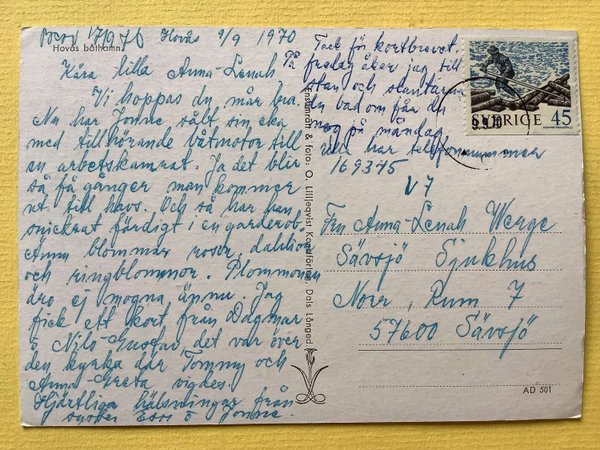 Hovås 9/9 1970
Hovås båthamn.
Kära lilla Anna-Lenah
Vi hoppas du mår bra.
Nu har Jonne sålt sin eka
med tillhörande båtmotor till
en arbetskamrat. Ja det blir
så få gånger man kommer
ut till havs. Och så har han
snickrat färdigt i en garderob.
Ännu blommar rosor, dahlior
och ringblommor. Plommonen
äro ej mogna ännu. Jag
fick ett kort från Dagmar
o Nils-Gustav, det var över
den kyrka där Tommy och
Anna-Greta vigdes.
Hjärtliga hälsningar från
syster o Jonne.
Tack för kortbrevet.
På fredag åker jag till
stan och
du bad om får du
nog på måndag.
har telefonnummer
169345
Ensamrätt & foto: O. Lilljeqvist Kortförlag, Dals Långed
SVERIGE 45
9.9.70
V 7
Fru Anna-Lenah Werge
Sävsjö Sjukhus
Norr, Rum 7
57600 Sävsjö
AD 501